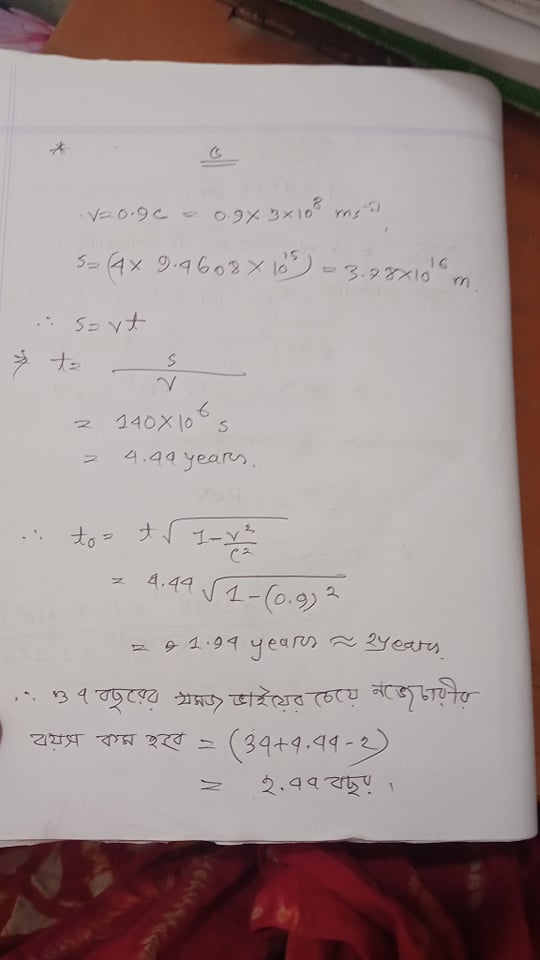 *
G
v=0.9c = 0.9×3×10⁸ ms⁻¹,
s=(4× 9.4608×10¹⁵) = 3.78×10¹⁶ m.
∴ s=vt
⇒ t= s/v
= 140×10⁶ s
= 4.44 years.
∴ t₀= t√(1-v²/c²)
= 4.44 √(1-(0.9)²)
= 1.94 years ≈ 2 years.
∴ ৩৪ বছরের যমজ ভাইয়ের চেয়ে নভোচারীর
বয়স কম হবে = (34+4.44-2)
= ২.৪৪ বছর।